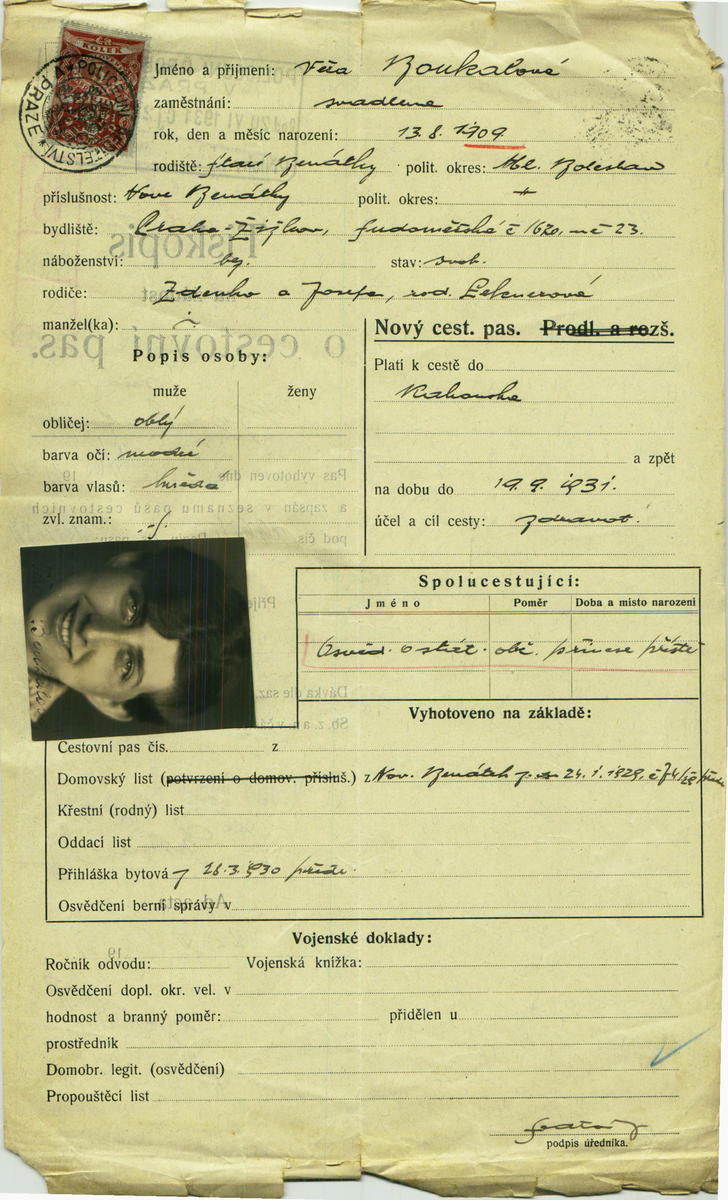 ČR.
KOLEK
POLICEJNÍ ŘEDITELSTVÍ V PRAZE
Jméno a příjmení: Věra Boukalová
zaměstnání: švadlena
rok, den a měsíc narození: 13.8. 1909
rodiště: Staré Benátky polit. okres: Ml. Boleslav
příslušnost: Nové Benátky polit. okres: "
bydliště: Praha-Žižkov, č 1620,
náboženství: bez. stav: svob.
rodiče: Zdenko a Josefa, roz.
manžel(ka):
Nový cest. pas. Prodl. a rozš.
Popis osoby:
muže ženy
obličej: oblý
barva očí: modré
barva vlasů: hnědá
zvl. znam.:
Platí k cestě do
Rakouska
a zpět
na dobu do 19.9. 1931.
účel a cíl cesty: zdravot.
Spolucestující:
Jméno Poměr Doba a místo narození
Osvěd. o stát. obč. přinese příště
Vyhotoveno na základě:
Cestovní pas čís. z
Domovský list (potvrzení o domov. přísluš.) z Nov. Benátek 24.1.1929, č
Křestní (rodný) list
Oddací list
Přihláška bytová z 28.3.1930
Osvědčení berní správy v
Vojenské doklady:
Ročník odvodu: Vojenská knížka:
Osvědčení dopl. okr. vel. v
hodnost a branný poměr: přidělen u
prostředník
Domobr. legit. (osvědčení)
Propouštěcí list
podpis úředníka.